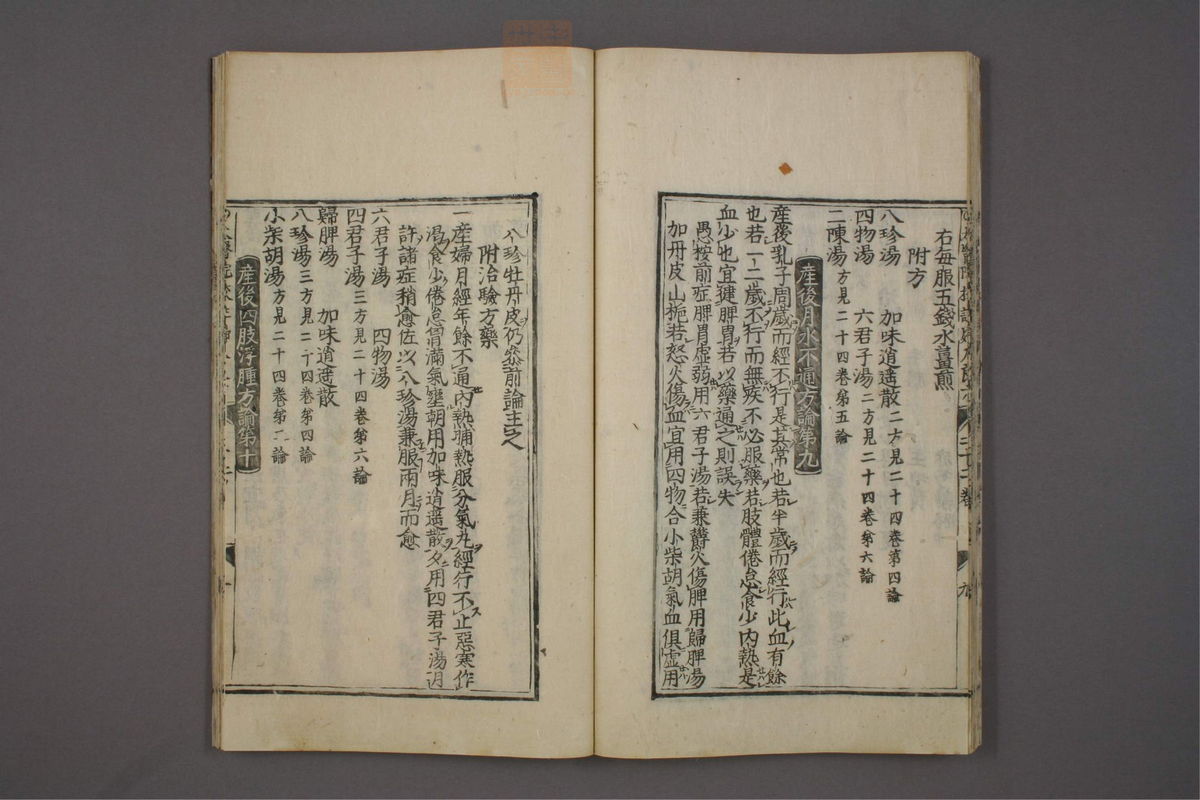 右每服五錢水薑煎
附方
八珍湯 加味逍遥散二方見二十四卷第四論
四物湯 六君子湯二方見二十四卷第六論
二陳湯方見二十四卷第五論
産後月水不通方論第九
産後乳子周歲而經不行是其常也若半歲而經行此血有餘
也若一二歲不行而無疾不必服藥若肢體倦怠食少内熱是
血少也宜健脾胃若以藥通之則誤矣
愚按前症脾胃虚弱用六君子湯若兼欝火傷脾用歸脾湯
加丹皮山梔若怒火傷血宜用四物合小柴胡氣血俱虚用
八珍牡丹皮仍叅前論主之
附治驗方藥
一産婦月經年餘不通内熱晡熱服分氣丸經行不止惡寒作
渇食少倦怠胷滿氣壅朝用加味逍遥散夕用四君子湯月
許諸症稍愈佐以八珍湯兼服兩月而愈
六君子湯 四物湯
四君子湯三方見二十四卷第六論
歸脾湯 加味逍遥散
八珍湯三方見二十四卷第四論
小柴胡湯方見二十四卷第二論
産後四肢浮腫方論第十